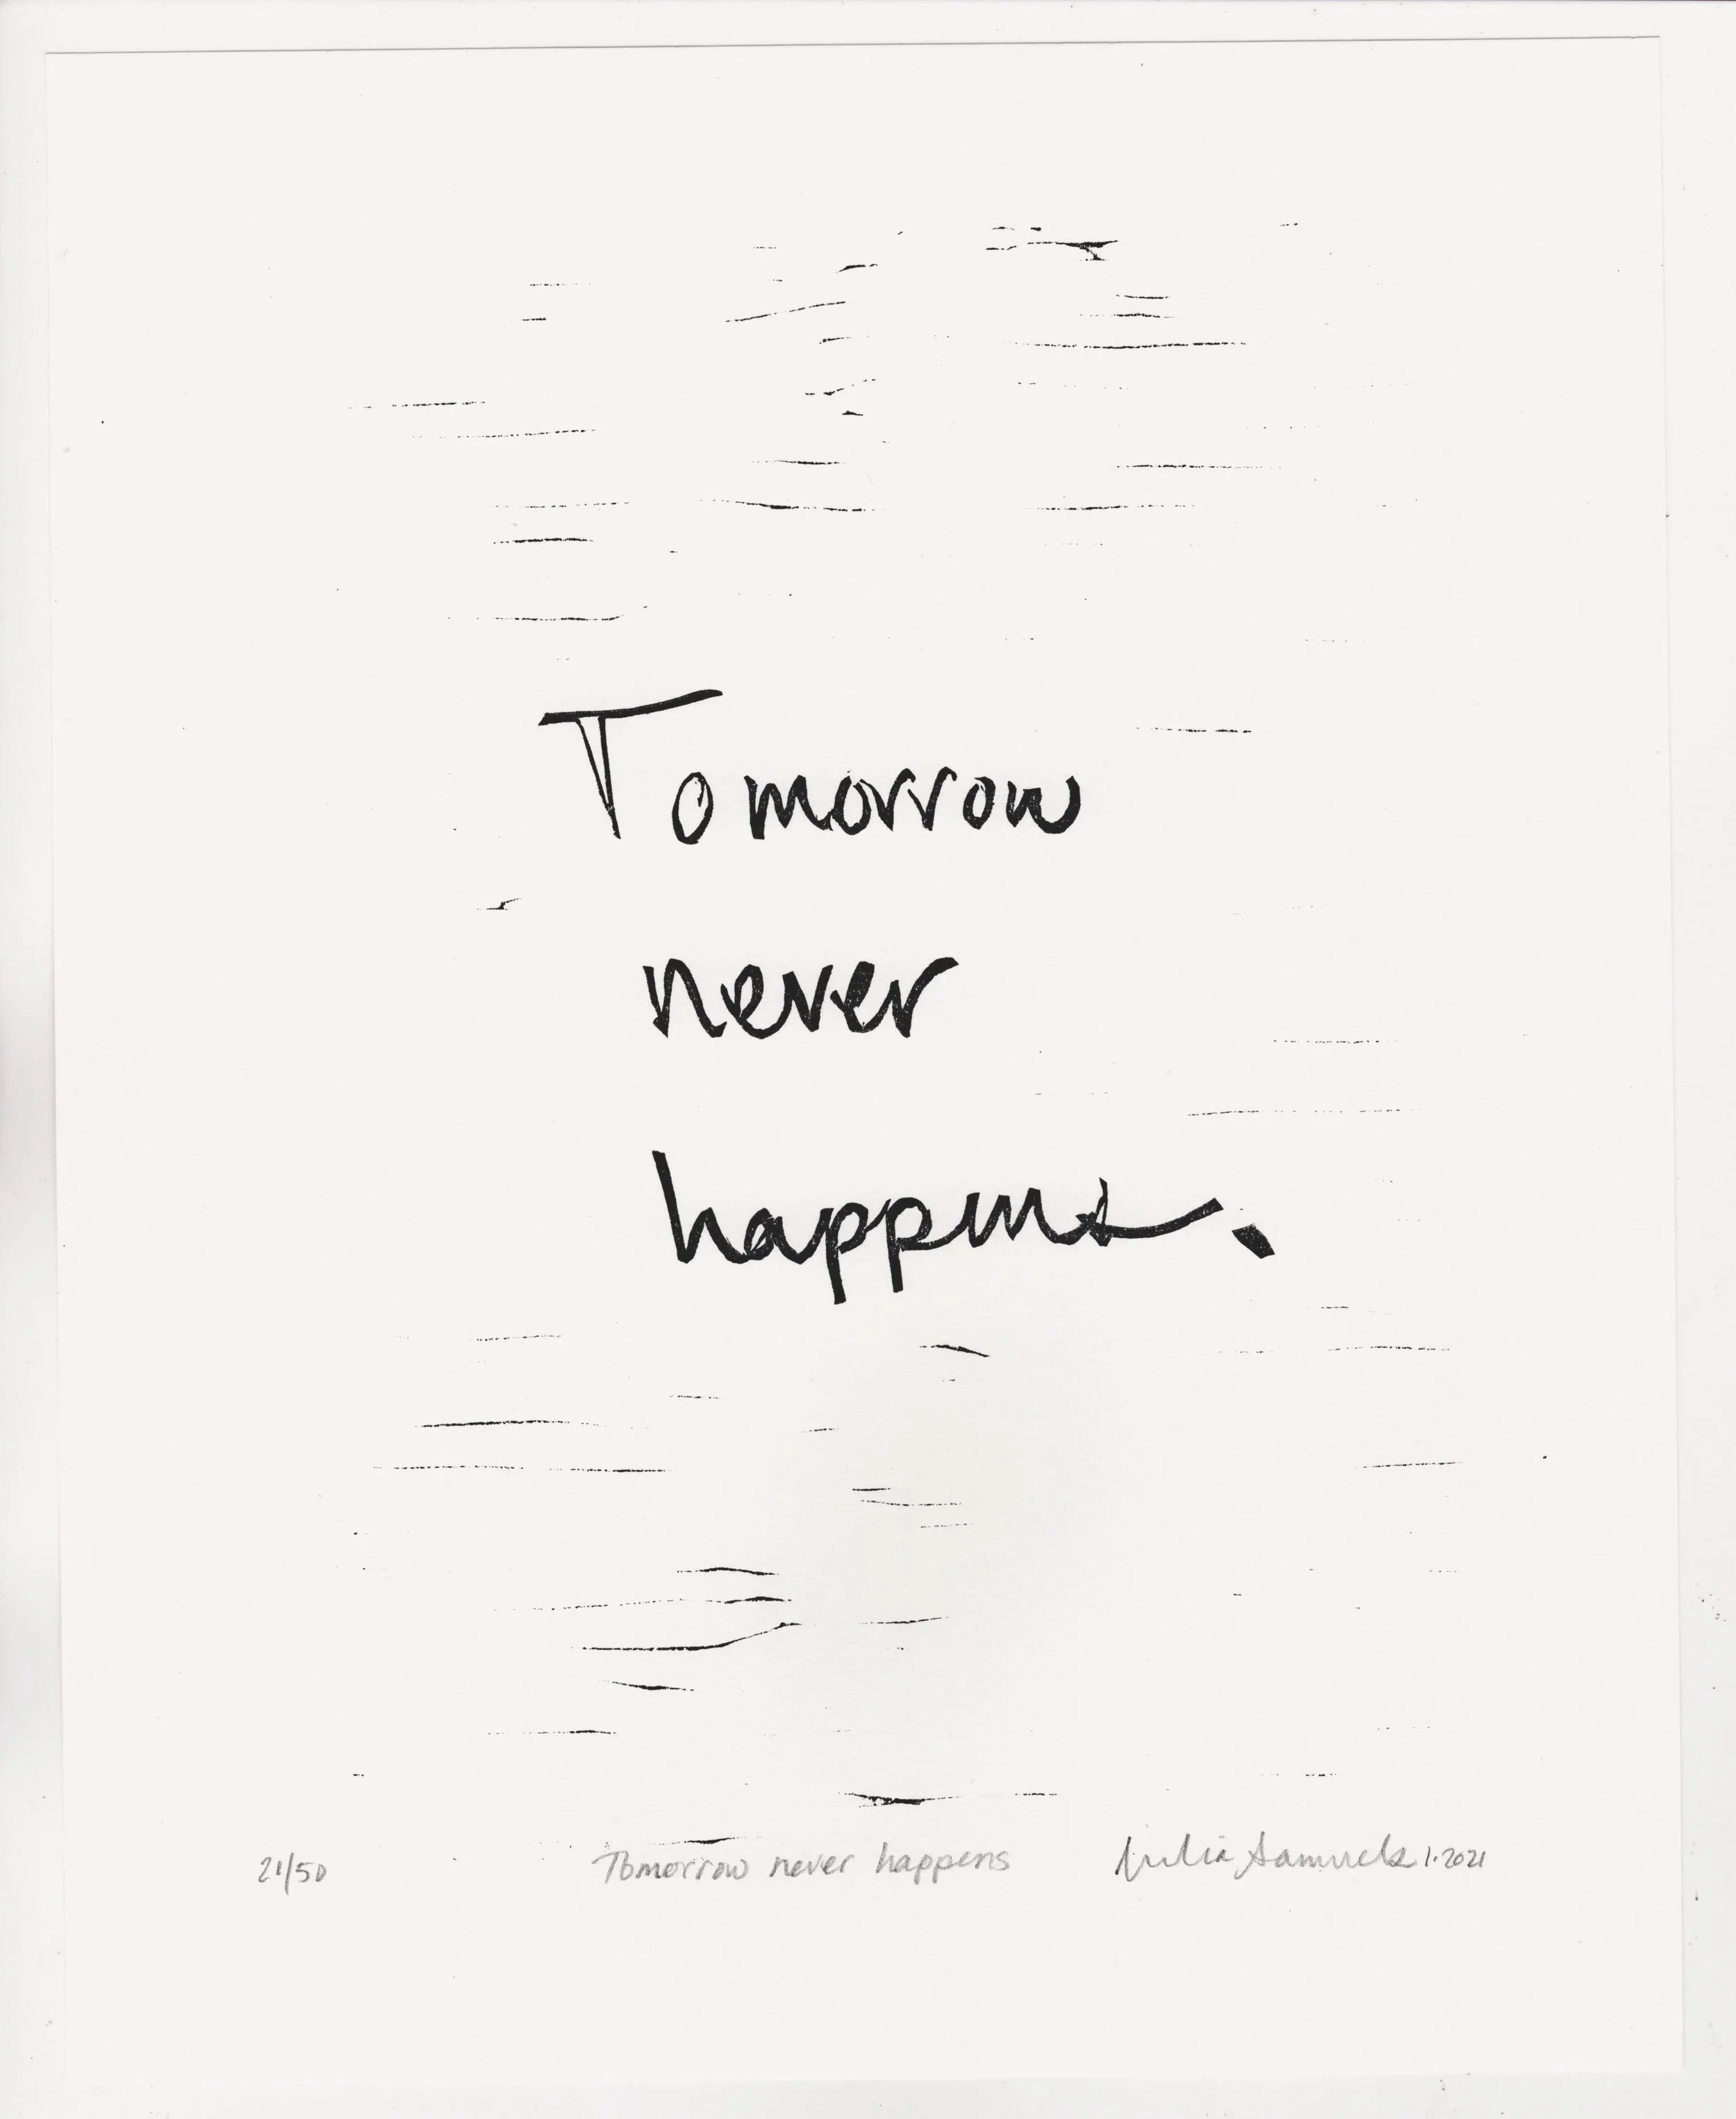 Tomorrow
never
happens.
21/50 Tomorrow never happens Julia Samuels 1.2021